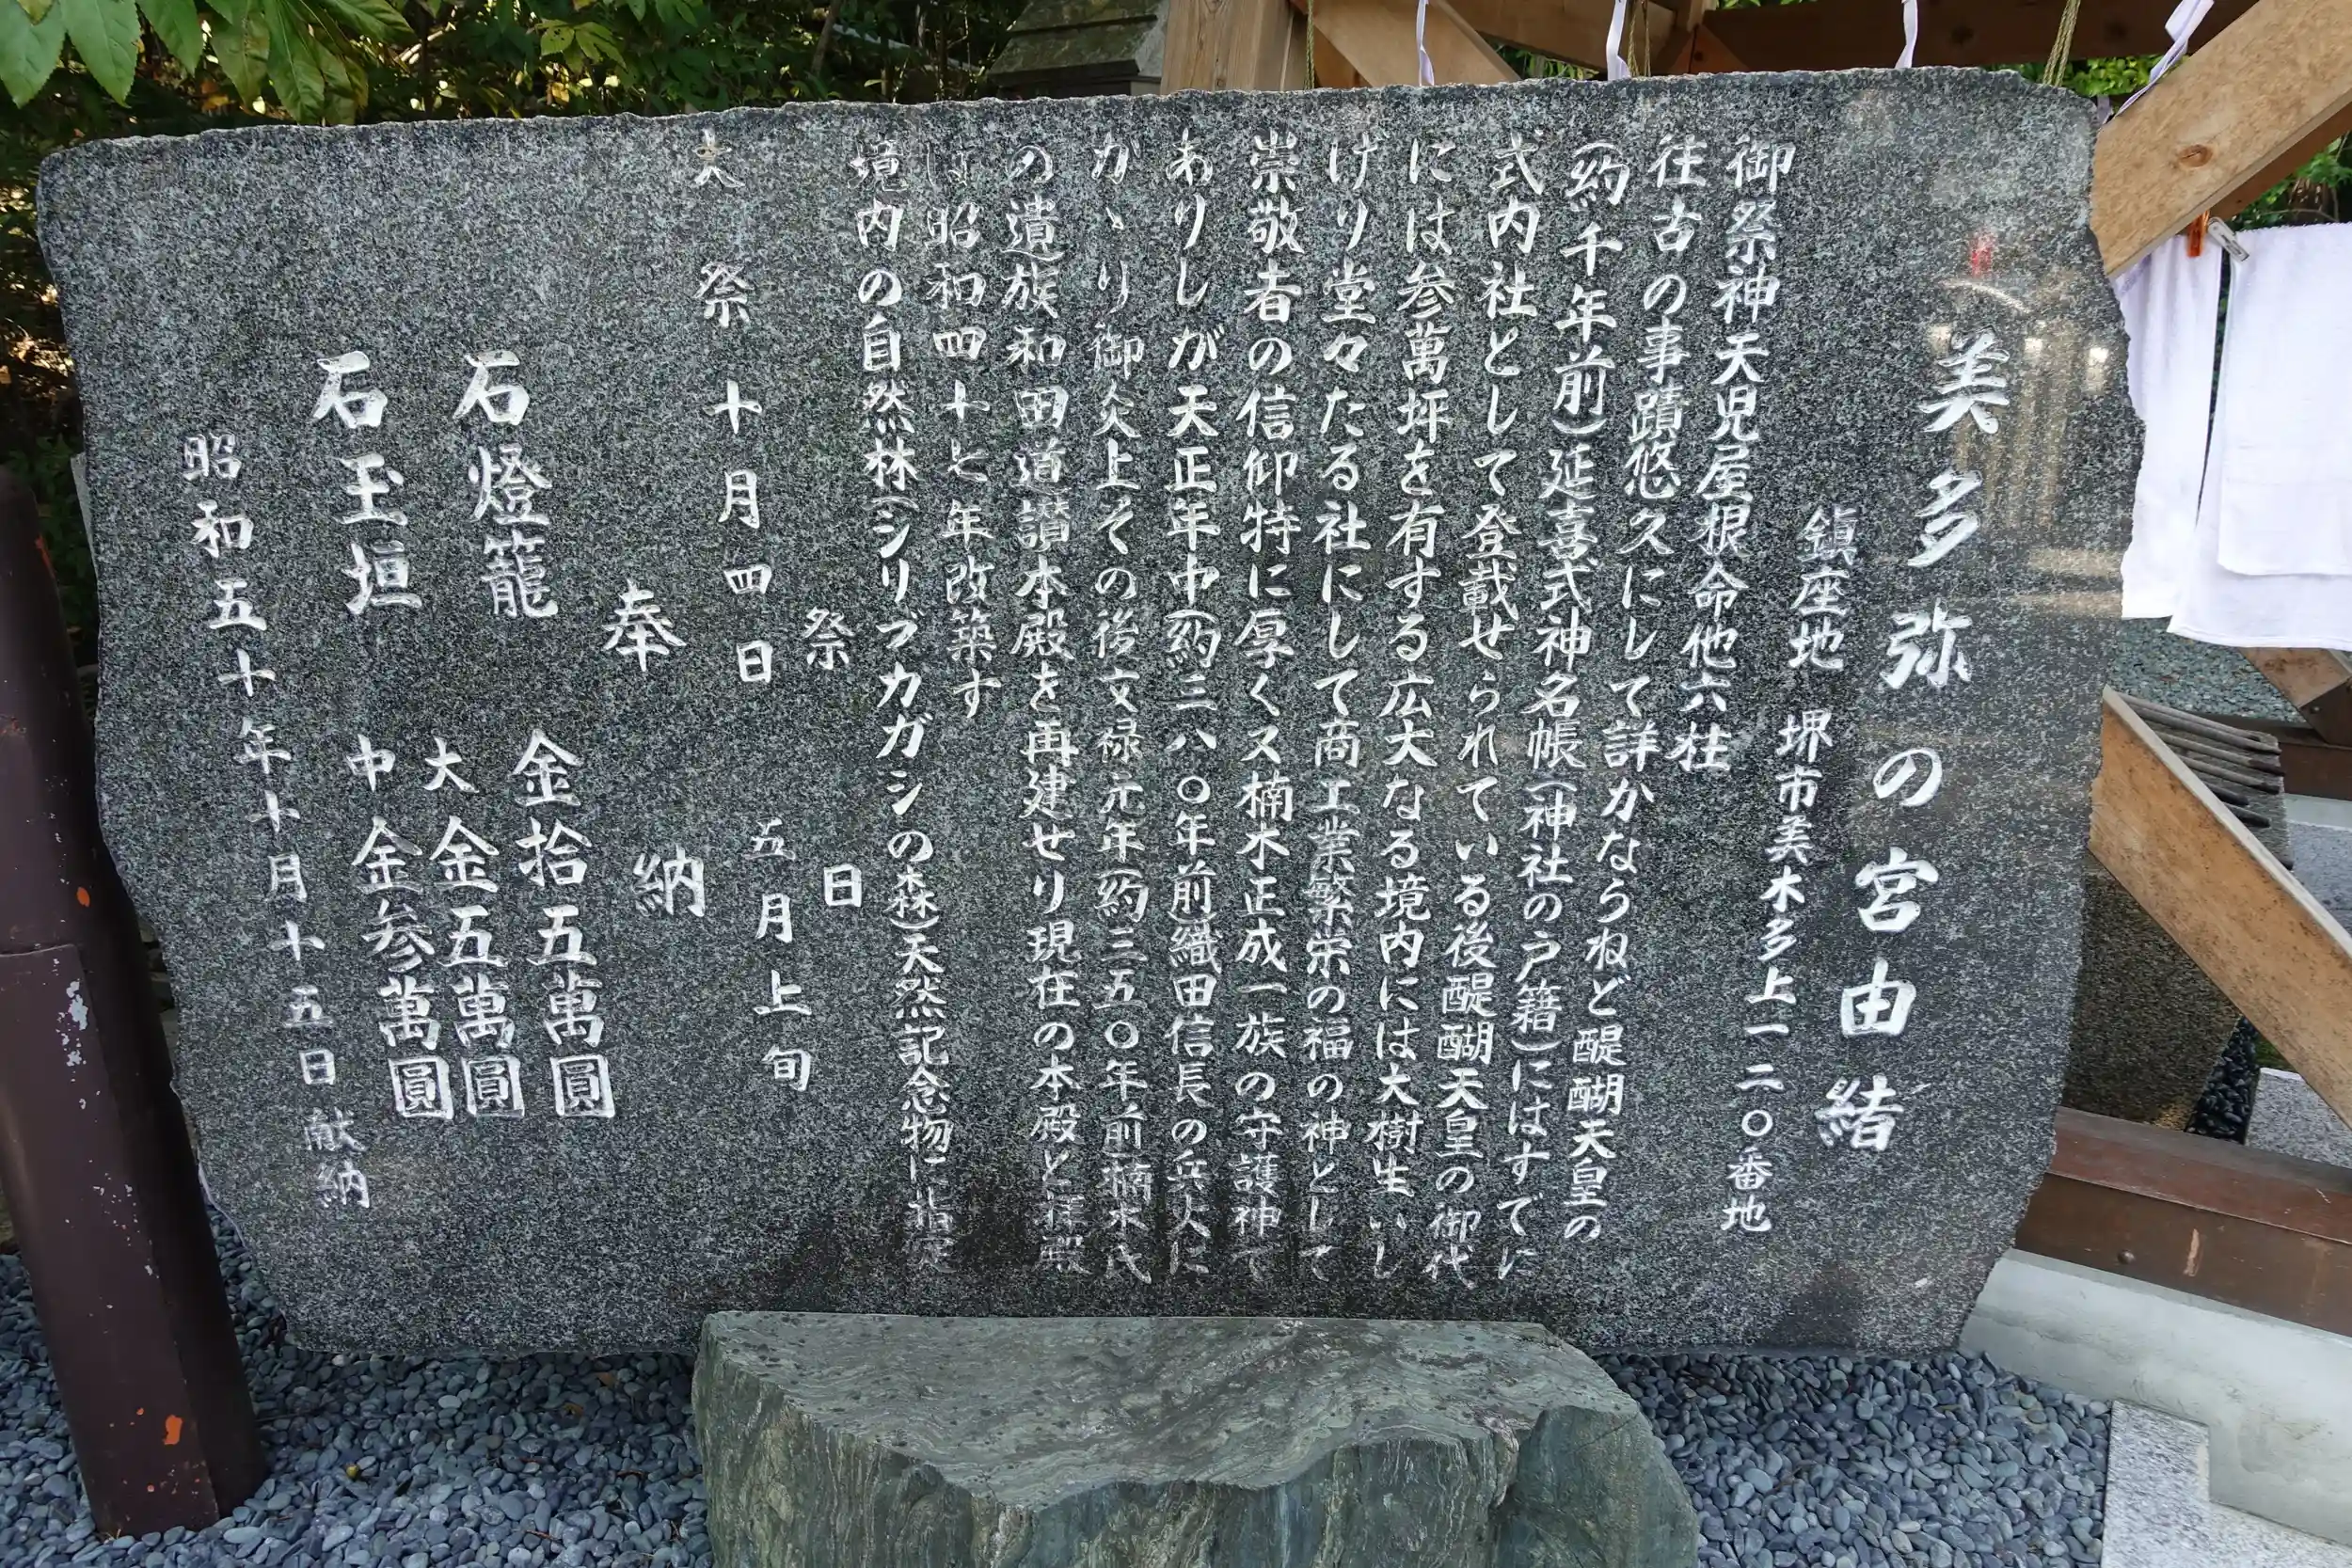 美多弥の宮由緒
鎮座地 堺市美木多上一二〇番地
御祭神天児屋根命他六柱
往古の事蹟悠久にして詳かならねど醍醐天皇の
(約千年前)延喜式神名帳(神社の戸籍)にはすでに
式内社として登載せられている後醍醐天皇の御代
には参萬坪を有する広大なる境内には大樹生いし
げり堂々たる社にして商工業繁栄の福の神として
崇敬者の信仰特に厚くス楠木正成一族の守護神で
ありしが天正年中(約三八〇年前)織田信長の兵火に
かゝり御炎上その後文禄元年(約三五〇年前)楠木氏
の遺族和田道讃本殿を再建せり現在の本殿と拝殿
は昭和四十七年改築す
境内の自然林(シリブカガシの森)天然記念物に指定
祭 日
大祭 十月四日 五月上旬
奉 納
石燈籠 金拾五萬圓
大金五萬圓
石玉垣 中金参萬圓
昭和五十年十月十五日献納